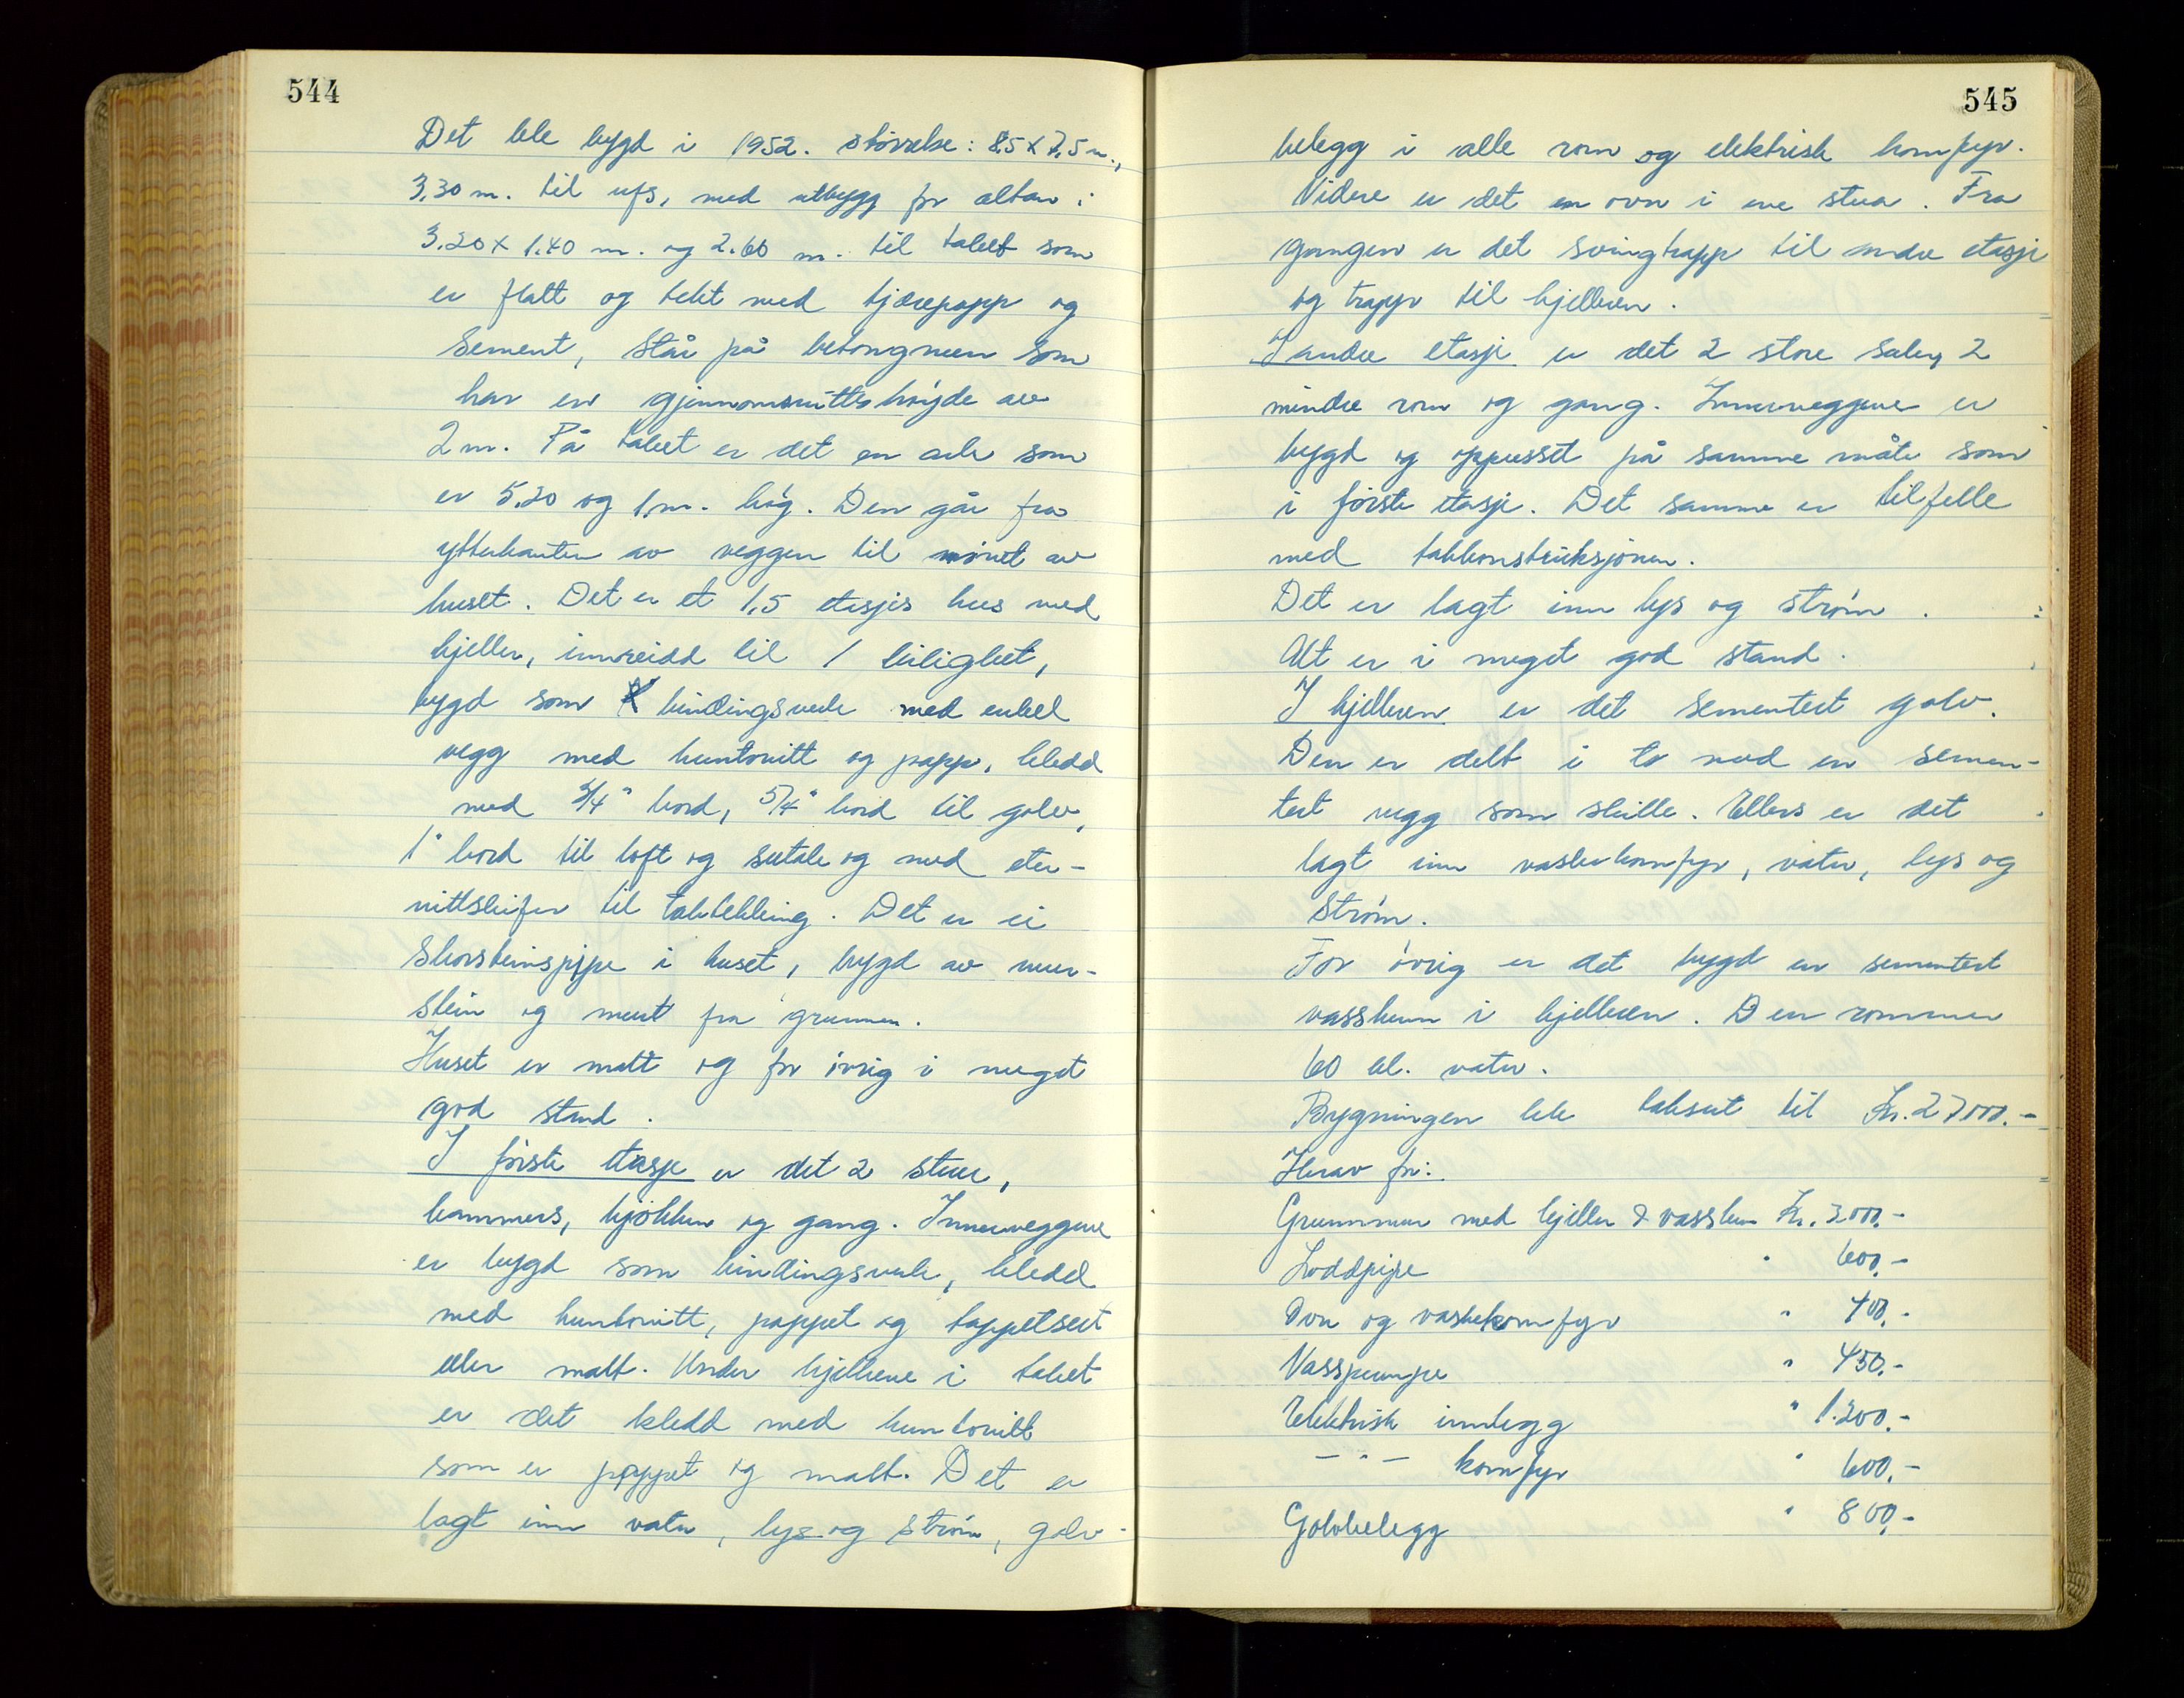 544
Det ble bygd i 1952. størrelse: 8,5 x 7,5 m.,
3,30 m. til ufs, med utbygg for altan:
3,20 x 1,40 m. og 2.60 m. til taket som
er flatt og tekt med tjærepapp og
sement, står på betongmur som
har en gjennomsnittshøyde av
2 m. På taket er det en ark som
er 5,20 og 1 m. høg. Den går fra
ytterkanten av veggen til mønet av
huset. Det er et 1,5 etasjes hus med
kjeller, innreidd til 1 leilighet,
bygd som bindingsverk med enkel
vegg med huntonitt og papp, kledd
med 3/4" bord, 5/4" bord til golv,
1" bord til loft og sutak og med eter-
nittskifer til taktekking. Det er ei
skorsteinspipe i huset, bygd av mur-
stein og murt fra grunnen.
Huset er malt og for øvrig i meget
god stand.
I første etasje er det 2 stuer,
kammers, kjøkken og gang. Innerveggene
er bygd som bindingsverk, kledd
med huntonitt, pappet og tappetsert
eller malt. Under bjelkene i taket
er det kledd med huntonitt
som er pappet og malt. Det er
lagt inn vatn, lys og strøm, golv-
545
belegg i alle rom og elektrisk komfyr.
Videre er det en ovn i ene stua. Fra
gangen er det svingtrapp til andre etasje
og trapp til kjelleren.
I andre etasje er det 2 store saler, 2
mindre rom og gang. Innerveggene er
bygd og oppusset på samme måte som
i første etasje. Det samme er tilfelle
med takkonstruksjonen.
Det er lagt inn lys og strøm.
Alt er i meget god stand.
I kjelleren er det sementert golv.
Den er delt i to med en semen-
tert vegg som skille. Ellers er det
lagt inn vaskekomfyr, vatn, lys og
strøm.
For øvrig er det bygd en sementert
vasskum i kjelleren. Den rommer
60 hl. vatn.
Bygningen ble taksert til Kr. 27000.-
Herav for:
Grunnmur med kjeller & vasskum Kr. 3.000.-
Loddpipe " 600.-
Ovn og vaskekomfyr " 400.-
Vasspumpe " 450.-
Elektrisk innlegg " 1.200.-
- " - komfyr " 600.-
Golvbelegg " 800.-